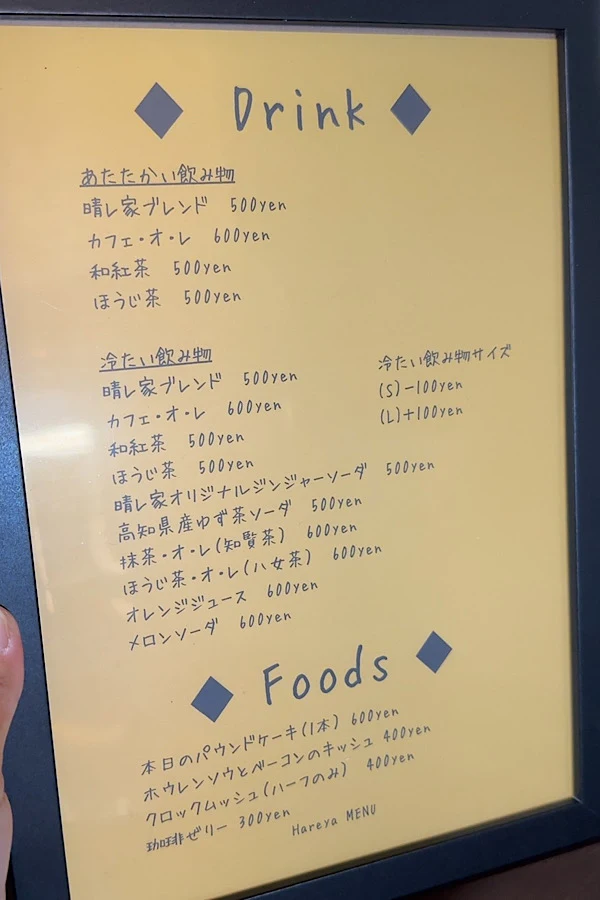 ◆ Drink ◆
あたたかい飲み物
晴レ家ブレンド 500yen
カフェ・オ・レ 600yen
和紅茶 500yen
ほうじ茶 500yen
冷たい飲み物
晴レ家ブレンド 500yen
カフェ・オ・レ 600yen
和紅茶 500yen
ほうじ茶 500yen
晴レ家オリジナルジンジャーソーダ 500yen
高知県産ゆず茶ソーダ 500yen
抹茶・オ・レ(知覧茶) 600yen
ほうじ茶・オ・レ(八女茶) 600yen
オレンジジュース 600yen
メロンソーダ 600yen
冷たい飲み物サイズ
(S)-100yen
(L)+100yen
◆ Foods ◆
本日のパウンドケーキ(1本) 600yen
ホウレンソウとベーコンのキッシュ 400yen
クロックムッシュ(ハーフのみ) 400yen
珈琲ゼリー 300yen
Hareya MENU